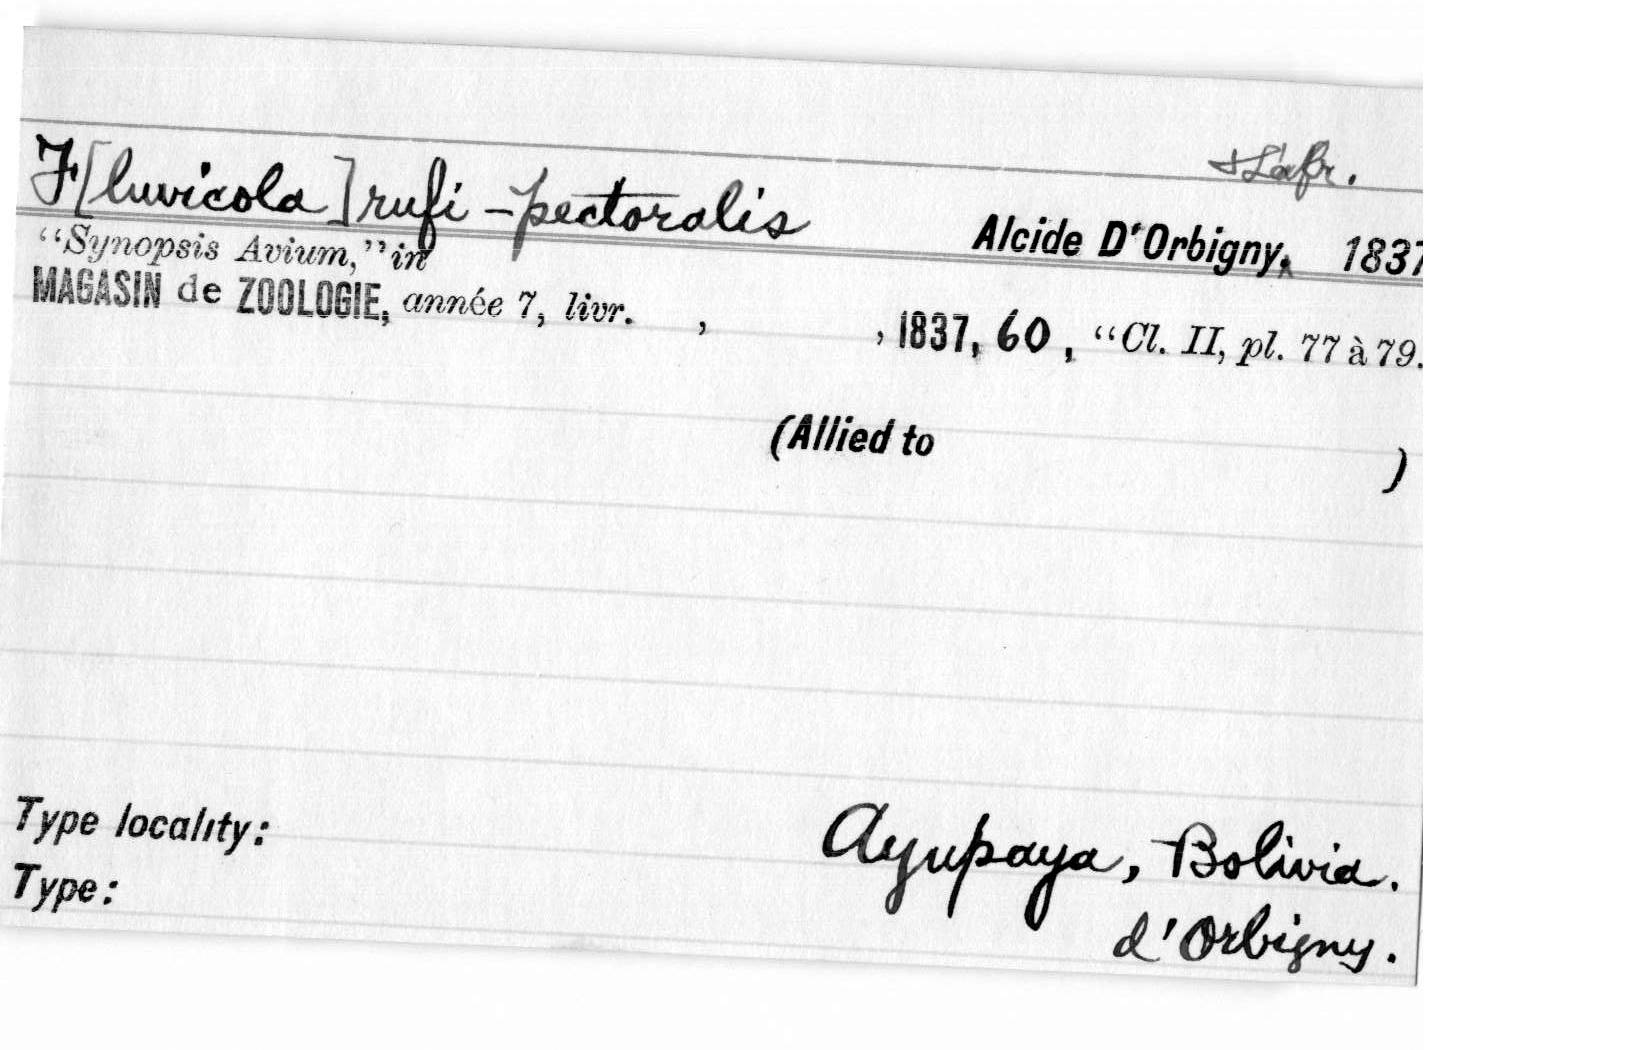 + Lafr.
F[luvicola] rufi-pectoralis Alcide D'Orbigny, 1837
“Synopsis Avium,” in
MAGASIN de ZOOLOGIE, année 7, livr. , , 1837, 60, “Cl. II, pl. 77 à 79.
(Allied to )
Type locality: Ayupaya, Bolivia.
Type: d'Orbigny.